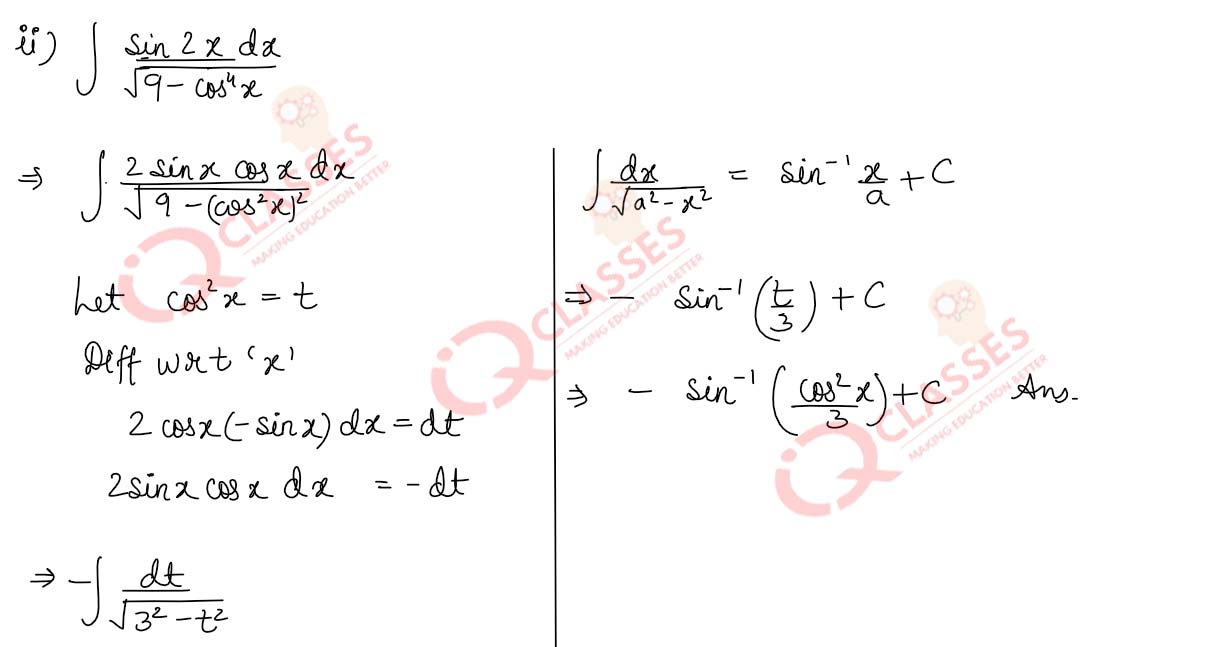 ii) ∫ sin 2x dx / √(9 − cos⁴x)
⇒ ∫ 2 sinx cosx dx / √(9 − (cos²x)²)
Let cos²x = t
Diff wrt 'x'
2 cosx (−sinx) dx = dt
2sinx cosx dx = −dt
⇒ −∫ dt / √(3² − t²)
∫ dx / √(a² − x²) = sin⁻¹ x/a + C
⇒ − sin⁻¹ (t/3) + C
⇒ − sin⁻¹ (cos²x/3) + C Ans.
iQ CLASSES
MAKING EDUCATION BETTER
iQ CLASSES
MAKING EDUCATION BETTER
iQ CLASSES
MAKING EDUCATION BETTER